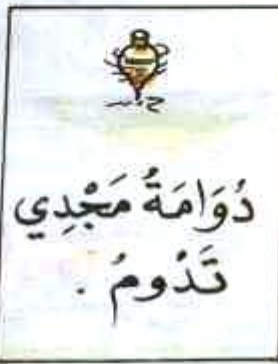 دُوَامَةُ مَجْدِي
تَدُومُ .